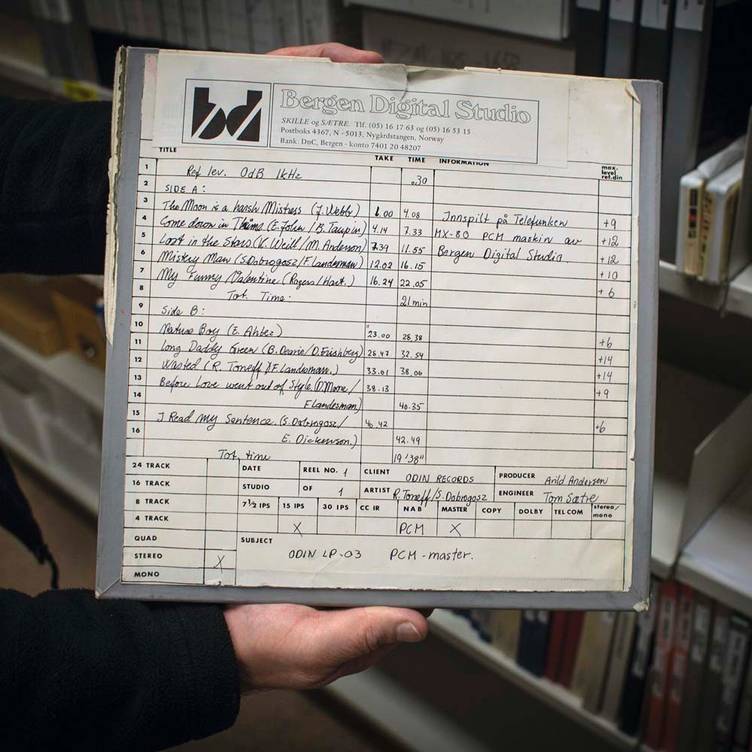 bd
Bergen Digital Studio
SKILLE og SÆTRE. Tlf. (05) 16 17 63 og (05) 16 53 15
Postboks 4367, N - 5013, Nygårdstangen, Norway
Bank: DnC, Bergen - konto 7401 20 48207
TITLE TAKE TIME INFORMATION max. level ref. din
1 Ref lev. 0dB 1kHz .30
2 SIDE A:
3 The Moon is a harsh Mistress (J. Webb) 1.00 4.08 Innspilt på Telefunken +9
4 Come down in Time (E. John / B. Taupin) 4.14 7.33 MX-80 PCM maskin av +12
5 Lost in the Stars (K. Weill / M. Anderson) 7.39 11.55 Bergen Digital Studio +12
6 Mistery Man (S. Dobrogosz / F. Landesman) 12.02 16.15 +10
7 My Funny Valentine (Rogers / Hart.) 16.24 22.05 +6
8 Tot. Time: 21 min
9 Side B:
10 Nature Boy (E. Ahbez) 23.00 28.38 +6
11 Long Daddy Green (B. Dearie / D. Frishberg) 28.47 32.54 +14
12 Wasted (R. Toneff / F. Landesman.) 33.01 38.06 +14
13 Before Love went out of Style (D. Moore / 38.13 +9
14 F Landesman) 40.35
15 I Read My Sentence. (S. Dobrogosz / 40.42 +6
16 E. Dickenson.) 42.49
Tot. time 19'38"
24 TRACK
16 TRACK
8 TRACK
4 TRACK
QUAD
STEREO X
MONO
DATE REEL NO. 1 CLIENT ODIN RECORDS PRODUCER Arild Andersen
STUDIO OF 1 ARTIST R. Toneff / S. Dobrogosz ENGINEER Tom Sætre
7½ IPS 15 IPS 30 IPS CC IR NAB MASTER COPY DOLBY TEL COM stereo / mono
X PCM X
SUBJECT
ODIN LP-03 PCM-master.